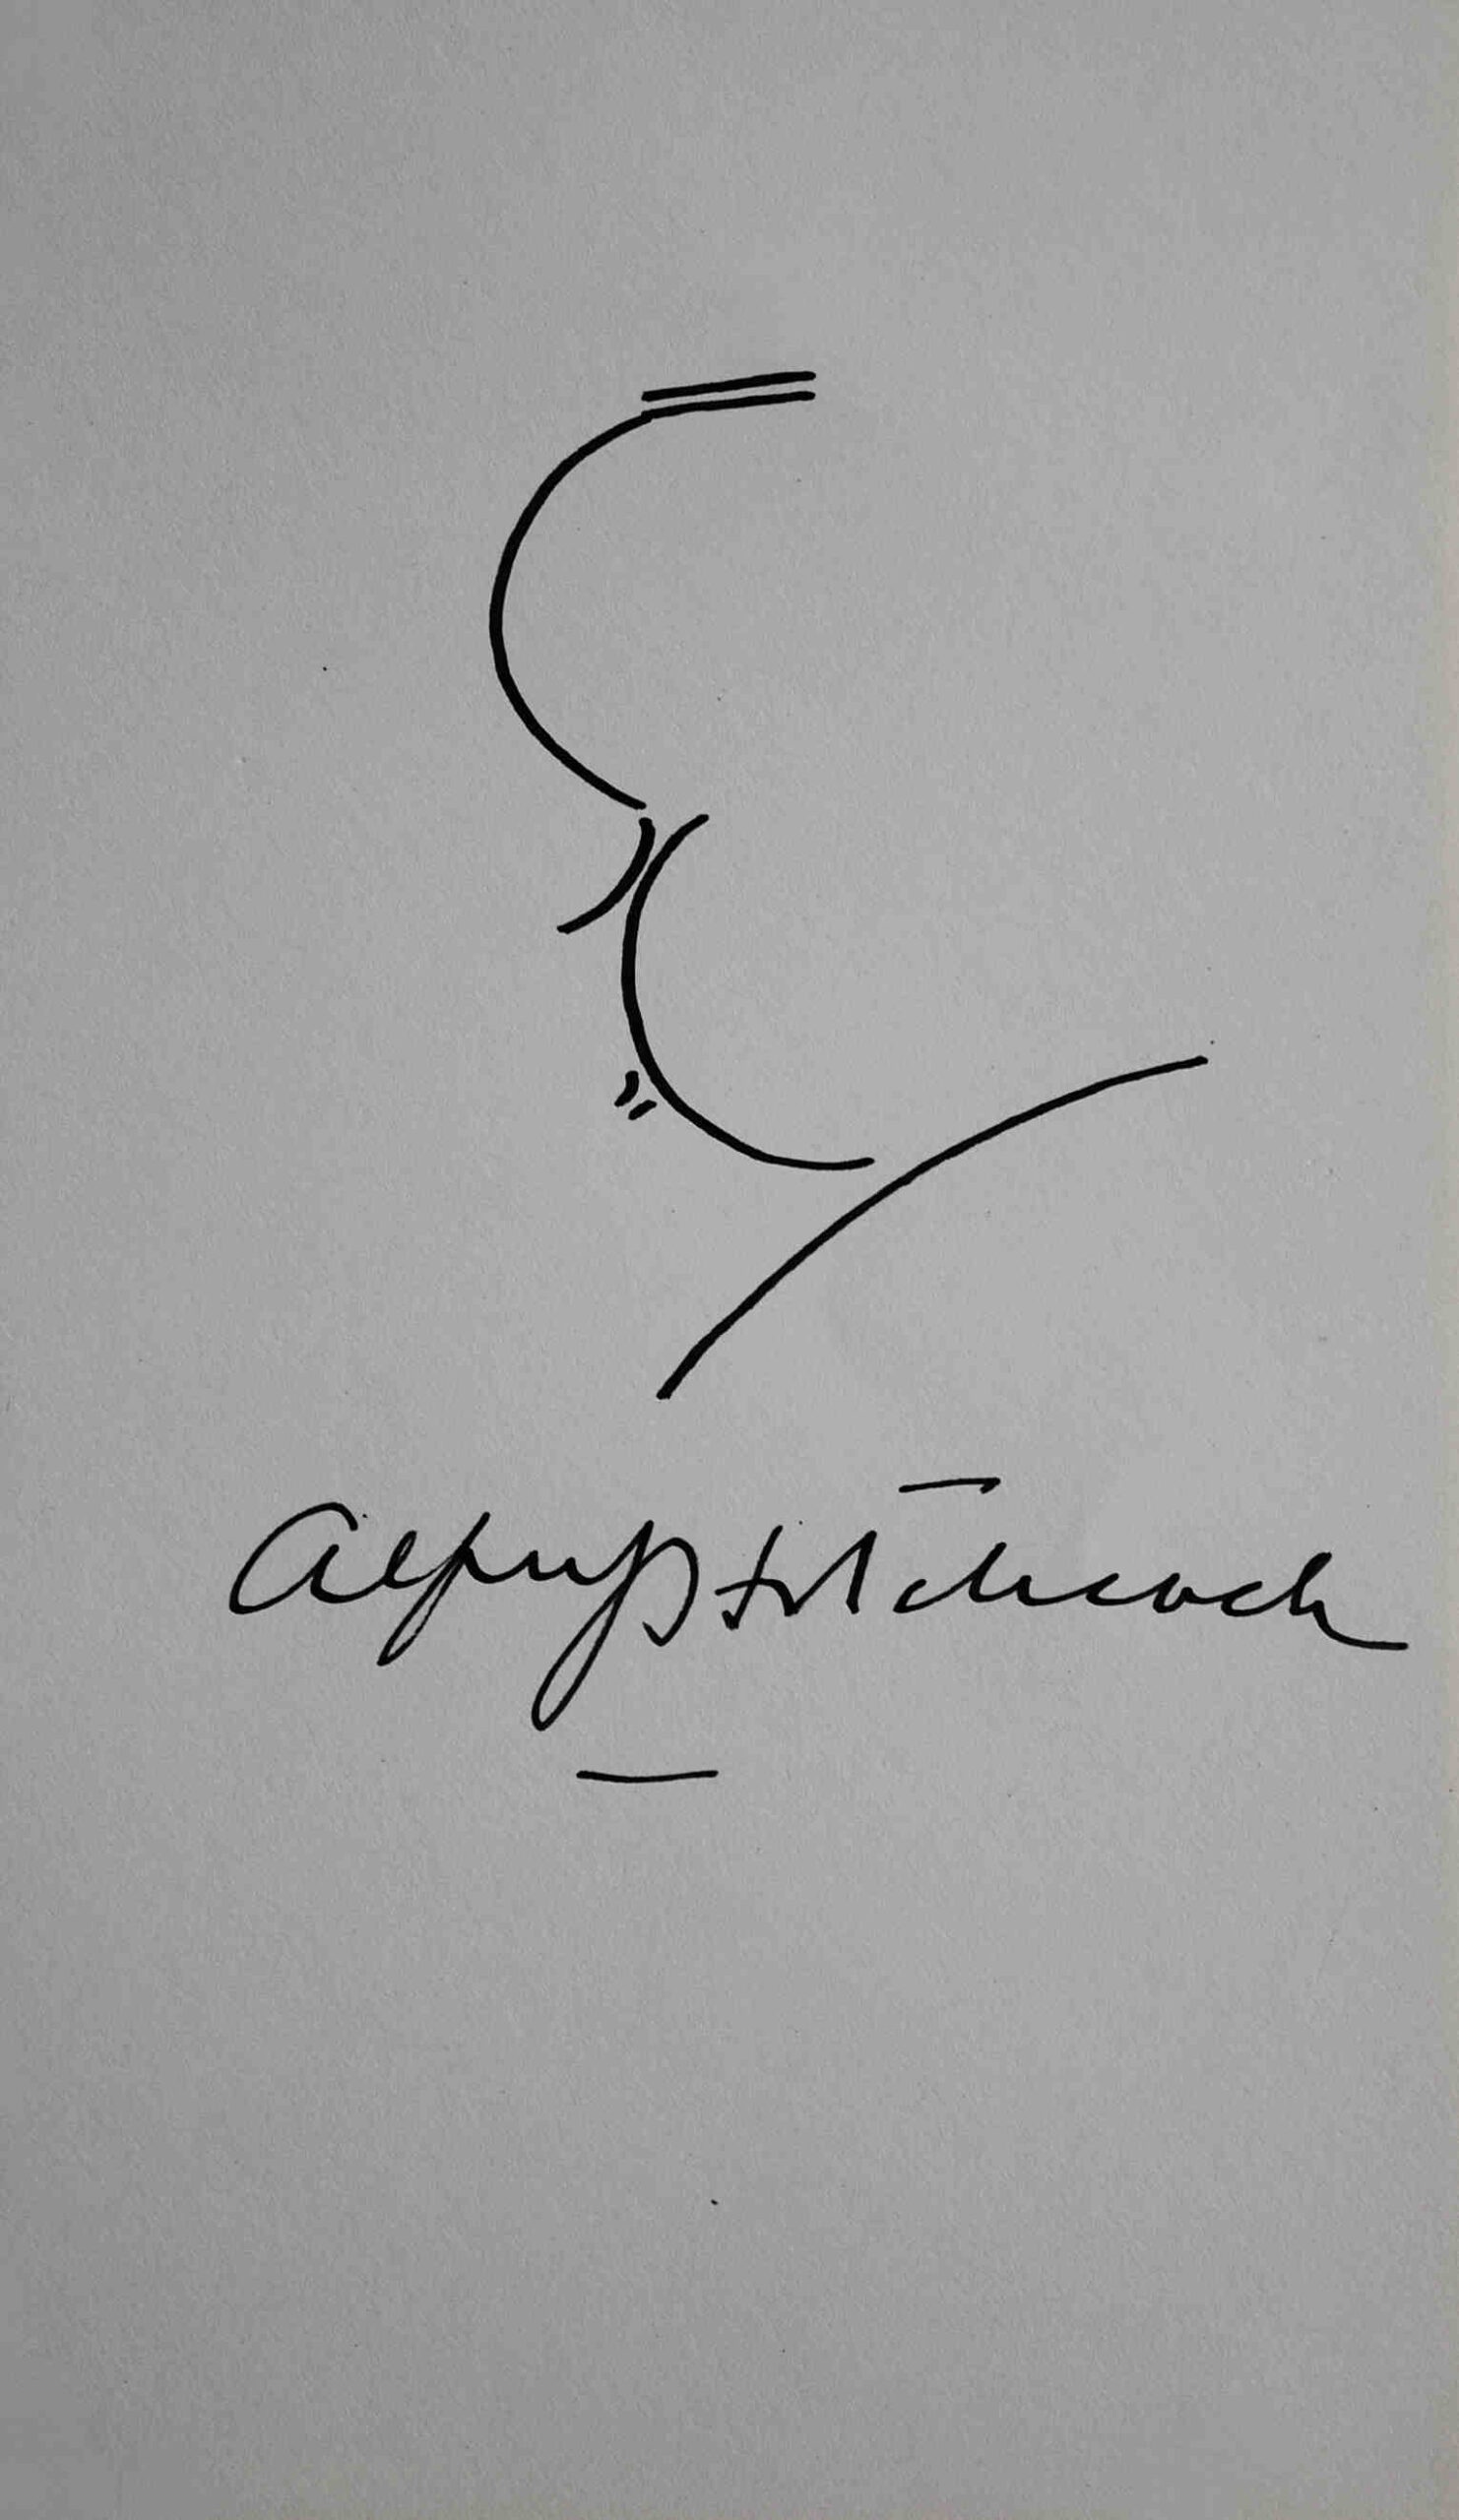 Alfred Hitchcock